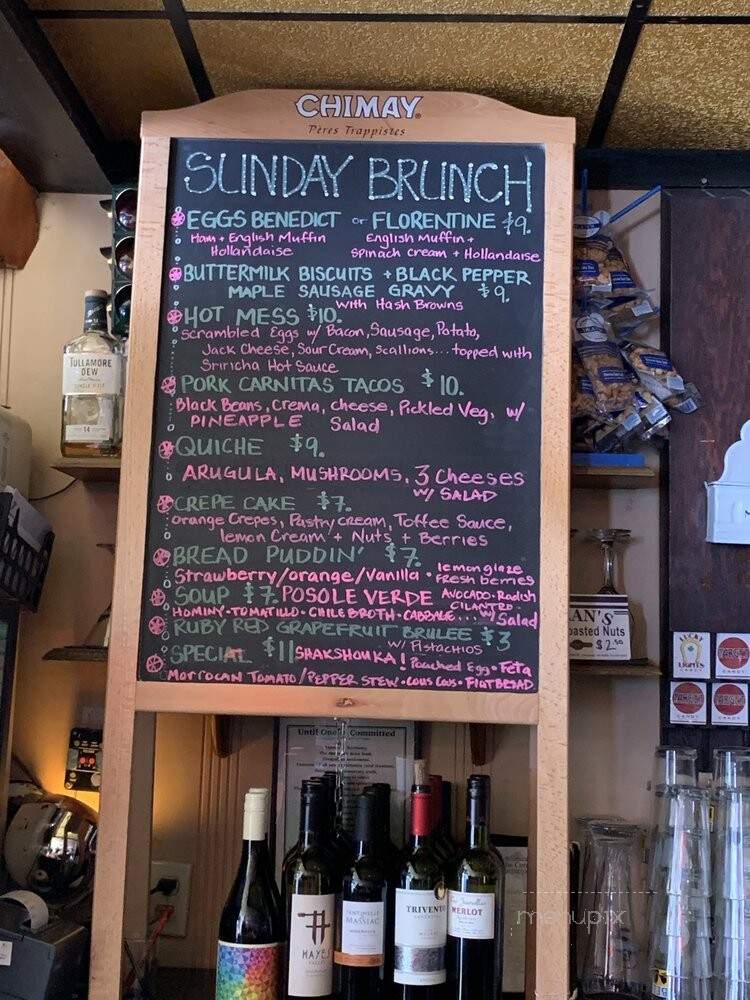 CHIMAY®
Pères Trappistes
SUNDAY BRUNCH
EGGS BENEDICT or FLORENTINE $9.
Ham + English Muffin English Muffin +
Hollandaise Spinach Cream + Hollandaise
BUTTERMILK BISCUITS + BLACK PEPPER
MAPLE SAUSAGE GRAVY $9.
with Hash Browns
HOT MESS $10.
Scrambled Eggs w/ Bacon, Sausage, Potato,
Jack Cheese, Sour Cream, Scallions... topped with
Sriricha Hot Sauce
PORK CARNITAS TACOS $10.
Black Beans, Crema, cheese, Pickled Veg, w/
PINEAPPLE Salad
QUICHE $9.
ARUGULA, MUSHROOMS, 3 Cheeses
w/ SALAD
CREPE CAKE $7.
Orange Crepes, Pastry cream, Toffee Sauce,
lemon Cream + Nuts + Berries
BREAD PUDDIN' $7.
Strawberry/orange/Vanilla • lemon glaze
Fresh berries
SOUP $7. POSOLE VERDE AVOCADO • Radish
CILANTRO •
HOMINY • TOMATILLO • CHILE BROTH • CABBAGE... w/ Salad
RUBY RED GRAPEFRUIT BRULEE $3
w/ PISTACHIOS
SPECIAL $11 SHAKSHOUKA! Poached Egg • Feta
MORROCAN TOMATO/PEPPER STEW • COUS COUS • FLATBREAD
TULLAMORE
DEW
14
AN'S
oasted Nuts
$2.50
LUCKY
LIGHTS
CANDY
TARGETS
CANDY
CANDY
CANDY
Until One is Committed
HAYES
VALLEY
MASSIAC
TRIVENTO
MERLOT
menupix